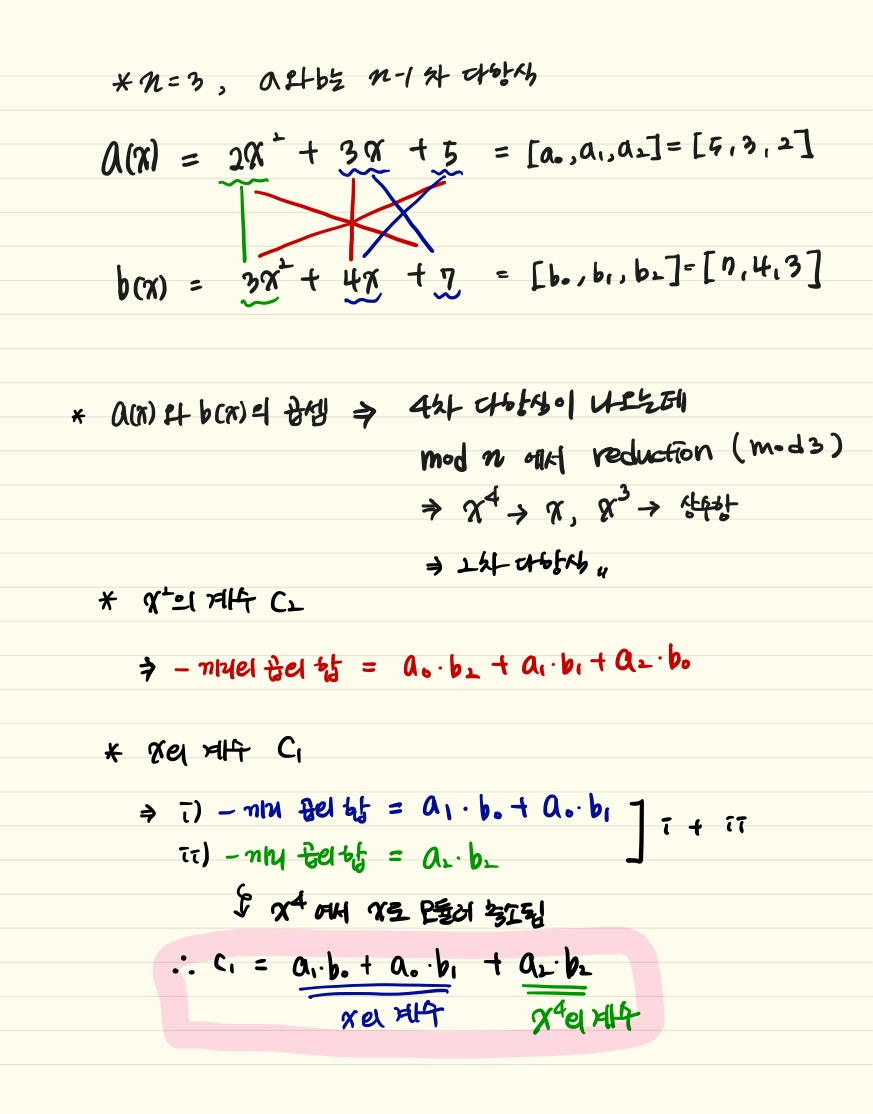 * n = 3 , a와 b는 n-1차 다항식
a(x) = 2x² + 3x + 5 = [a₀, a₁, a₂] = [5, 3, 2]
b(x) = 3x² + 4x + 7 = [b₀, b₁, b₂] = [7, 4, 3]
* a(x)와 b(x)의 곱셈 ⇒ 4차 다항식이 나오는데
mod n 에서 reduction (mod 3)
⇒ x⁴ → x, x³ → 상수항
⇒ 2차 다항식 〃
* x²의 계수 C₂
⇒ - 끼리의 곱의 합 = a₀·b₂ + a₁·b₁ + a₂·b₀
* x의 계수 C₁
⇒ i) - 끼리 곱의 합 = a₁·b₀ + a₀·b₁
ii) - 끼리 곱의 합 = a₂·b₂ ] i + ii
↳ x⁴에서 x로 모듈러 축소됨
∴ C₁ = a₁·b₀ + a₀·b₁ + a₂·b₂
x의 계수 x⁴의 계수